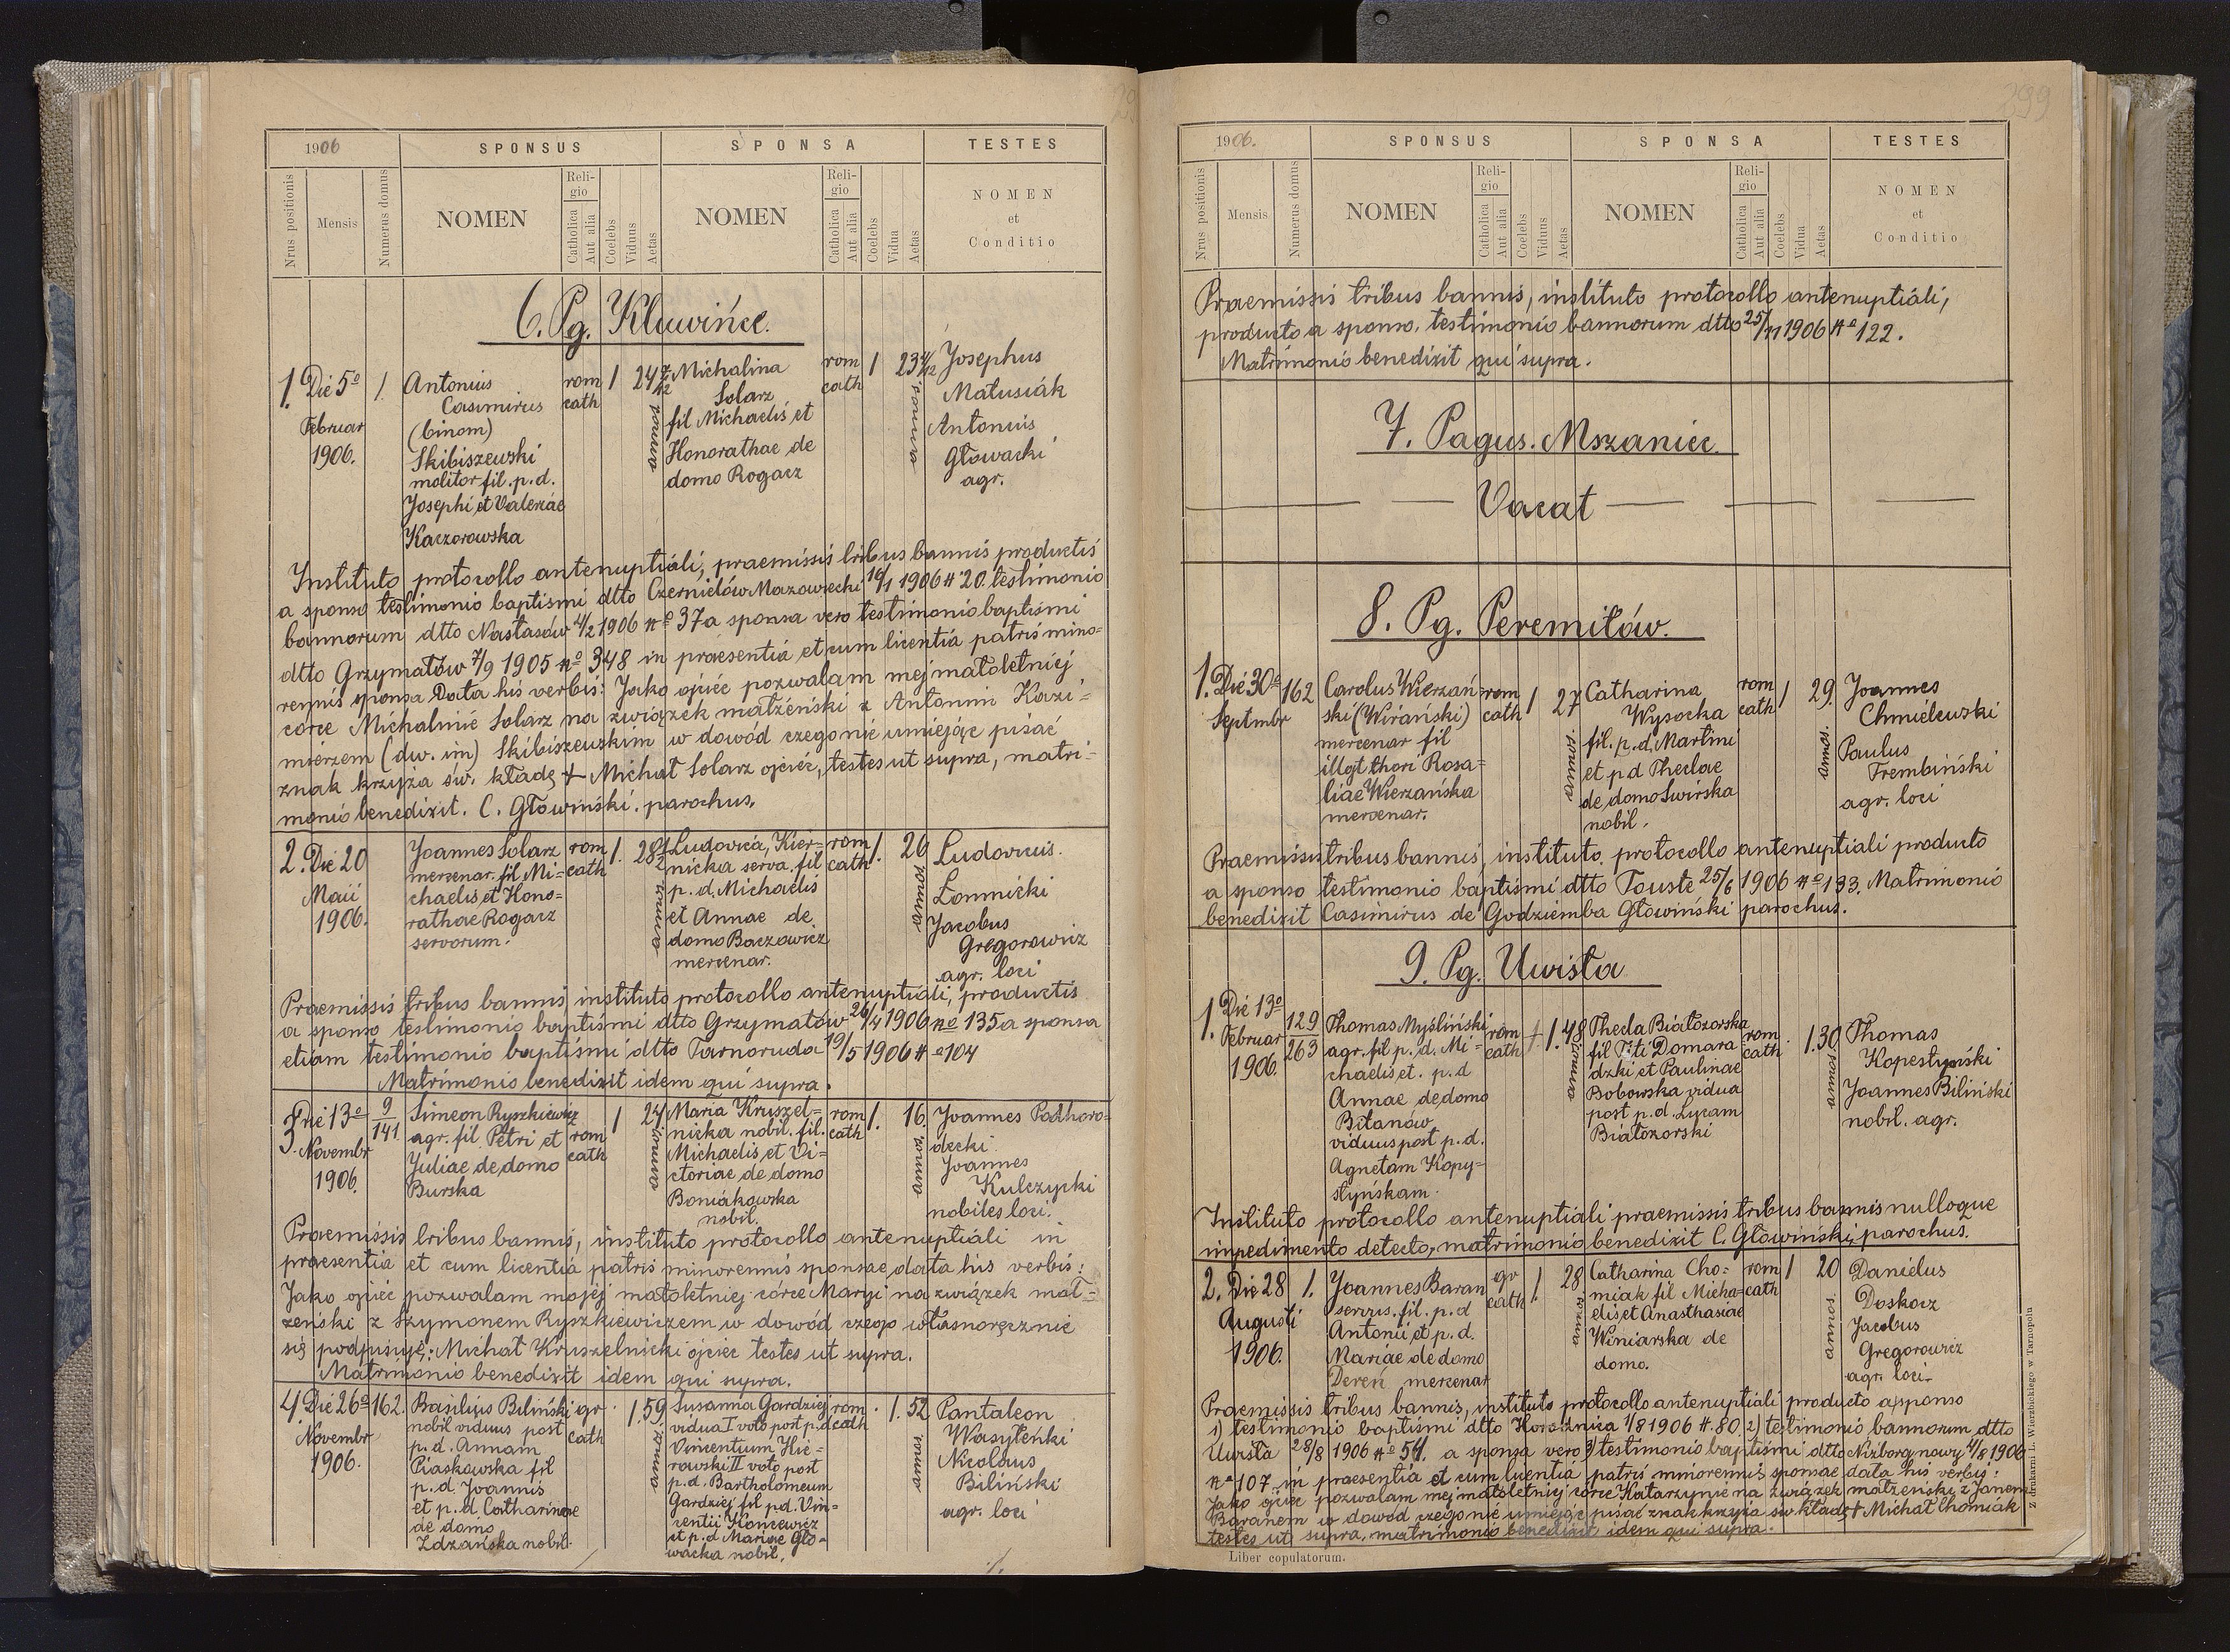 1906
SPONSUS
SPONSA
TESTES
Nrus positionis
Mensis
Numerus domus
NOMEN
Religio
Catholica
Aut alia
Coelebs
Viduus
Aetas
NOMEN
Religio
Catholica
Aut alia
Coelebs
Vidua
Aetas
NOMEN
et
Conditio
6. Pg. Kluwińce.
1. Die 5º
Februar
1906.
1.
Antonius
Casimirus
(binom)
Skibiszewski
molitor fil. p. d.
Josephi et Valeriae
Kaczorowska
rom
cath
1
24 7/12
annorum
Michalina
Solarz
fil Michaelis et
Honorathae de
domo Rogacz
rom
cath
1
annorum
Josephus
Matusiák
Antonius
Głowacki
agr.
Instituto protocollo antenuptiali, praemissis tribus bannis productis
a sponso testimonio baptismi dtto Czernielów Mazowiecki 16/1 1906 # 20. testimonio
bannorum dtto Nastasów 4/2 1906 nº 37 a sponsa vero testimonio baptismi
dtto Grzymałów 7/9 1905 nº 348 in praesentia et cum licentia patris mino=
rennis sponsa Data his verbis: Jako ojciec pozwalam mej małoletniej
córce Michalinie Solarz na związek małżeński z Antonim Kazi=
mierzem (dw. im) Skibiszewskim w dowód czego nie umiejąc pisać
znak krzyża św. kładę + Michał Solarz ojciec, testes ut supra, matri-
monio benedixit. C. Głowiński. parochus.
2. Die 20
Maii
1906.
Joannes Solarz
mercenar. fil Mi=
chaelis et Hono=
rathae Rogacz
servorum.
rom
cath
1.
annorum
Ludovica, Kier=
nicka serva. fil
p. d. Michaelis
et Annae de
domo Baczowicz
mercenar.
rom
cath
1.
annor
Ludovicus.
Łomnicki
Jacobus
Gregorowicz
agr. loci
Praemissis tribus bannis, instituto protocollo antenuptiali, productis
a sponso testimonio baptismi dtto Grzymałów 26/4 1906 nº 135 a sponsa
etiam testimonio baptismi dtto Tarnoruda 19/5 1906 #º 104
Matrimonio benedixit idem qui supra.
3. Die 13º
Novembr
1906.
9
141
Simeon Ryszkiewicz
agr. fil Petri et
Juliae de domo
Burska
rom
cath
1
24
annorum
Maria Kruszel=
nicka nobil. fil.
Michaelis et Vi=
ctoriae de domo
Boniakowska
nobil.
rom
cath
1.
16.
annor
Joannes Podhoro=
decki.
Joannes
Kulczycki
nobiles loci.
Praemissis tribus bannis, instituto protocollo antenuptiali in
praesentia et cum licentia patris minorennis sponsae data his verbis:
Jako ojciec pozwalam mojej małoletniej córce Maryi na związek mał=
żeński z Szymonem Ryszkiewiczem w dowód czego własnoręcznie
się podpisuję: Michał Kruszelnicki ojciec testes ut supra.
Matrimonio benedixit idem qui supra.
4. Die 26º
Novembr
1906.
162.
Basilius Biliński
nobil viduus post
p. d. Annam
Piaskowska fil
p. d Joannis
et p. d. Catharinae
de domo
Zdzańska nobil.
gr
cath
1.
59.
annor
Susanna Gardziej
vidua I voto post p.d
Vincentium Kie=
rowski II voto post
p. d. Bartholomeum
Gardziej fil p.d. Vin=
centii Koncewicz
et p. d Mariae Gło=
wacka nobil.
rom
cath
1.
52
annor
Pantaleon
Wasyleńki
Nicolaus
Biliński
agr. loci
299
1906.
SPONSUS
SPONSA
TESTES
Nrus positionis
Mensis
Numerus domus
NOMEN
Religio
Catholica
Aut alia
Coelebs
Viduus
Aetas
NOMEN
Religio
Catholica
Aut alia
Coelebs
Vidua
Aetas
NOMEN
et
Conditio
Praemissis tribus bannis, instituto protocollo antenuptiali,
producto a sponso, testimonio bannorum dtto 25/11 1906 #º 122.
Matrimonio benedixit qui supra.
7. Pagus. Mszaniec.
Vacat
8. Pg. Peremiłów.
1. Die 30º
Septmbr
162
Carolus Wierzań
ski (Wirański)
mercenar fil
illgt thori Rosa=
liae Wierzańska
mercenar.
rom
cath
1
27
annor
Catharina
Wysocka
fil. p. d. Martini
et p d Theclae
de domo Swirska
nobil.
rom
cath
1
29.
annos.
Joannes
Chmielewski
Paulus
Trembiński
agr. loci
Praemissis tribus bannis, instituto protocollo antenuptiali producto
a sponso testimonio baptismi dtto Touste 25/6 1906 #º 133. Matrimonio
benedixit Casimirus de Godziemba Głowiński parochus.
9. Pg. Uwisła
1. Die 13º
Februar
1906.
129
263
Thomas Myśliński
agr. fil p. d. Mi=
chaelis et. p. d
Annae de domo
Bitanów
viduus post p. d.
Agnetam Kopy=
styńskam.
rom
cath
1.
48
annorum
Thecla Białozorska
fil Titi Domara
dzki et Paulinae
Bobowska vidua
post p. d. Lucam
Białozorski
rom
cath
1.
30
annorum
Thomas
Kopestyński
Joannes Biliński
nobil. agr.
Instituto protocollo antenuptiali praemissis tribus bannis nulloque
impedimento detecto, matrimonio benedixit C. Głowiński, parochus.
2. Die 28
Augusti
1906.
1.
Joannes Baran
servus. fil. p. d
Antonii et p. d.
Mariae de domo
Dereń mercenar
gr
cath
1.
28
annor
Catharina Cho=
miak fil Micha=
elis et Anasthasiae
Winiarska de
domo.
rom
cath
1
20
annos.
Danielus
Doskocz
Jacobus
Gregorowicz
agr. loci.
Praemissis tribus bannis, instituto protocollo antenuptiali producto a sponso
1) testimonio baptismi dtto Horodnica 1/8 1906 #. 80. 2) testimonio bannorum dtto
Uwisła 28/8 1906 #º 54. a sponsa vero 3) testimonio baptismi dtto Niżborg nowy 4/8 1906
#º 107 in praesentia et cum licentia patris minorennis sponsae data his verbis:
Jako ojciec pozwalam mej małoletniej córce Katarzynie na związek małżeński z Janem
Baranem w dowód czego nie umiejąc pisać znak krzyża św. kładę + Michał Chomiak
testes ut supra, matrimonio benedixit idem qui supra.
Liber copulatorum.
Z drukarni L. Wierzbickiego w Tarnopolu